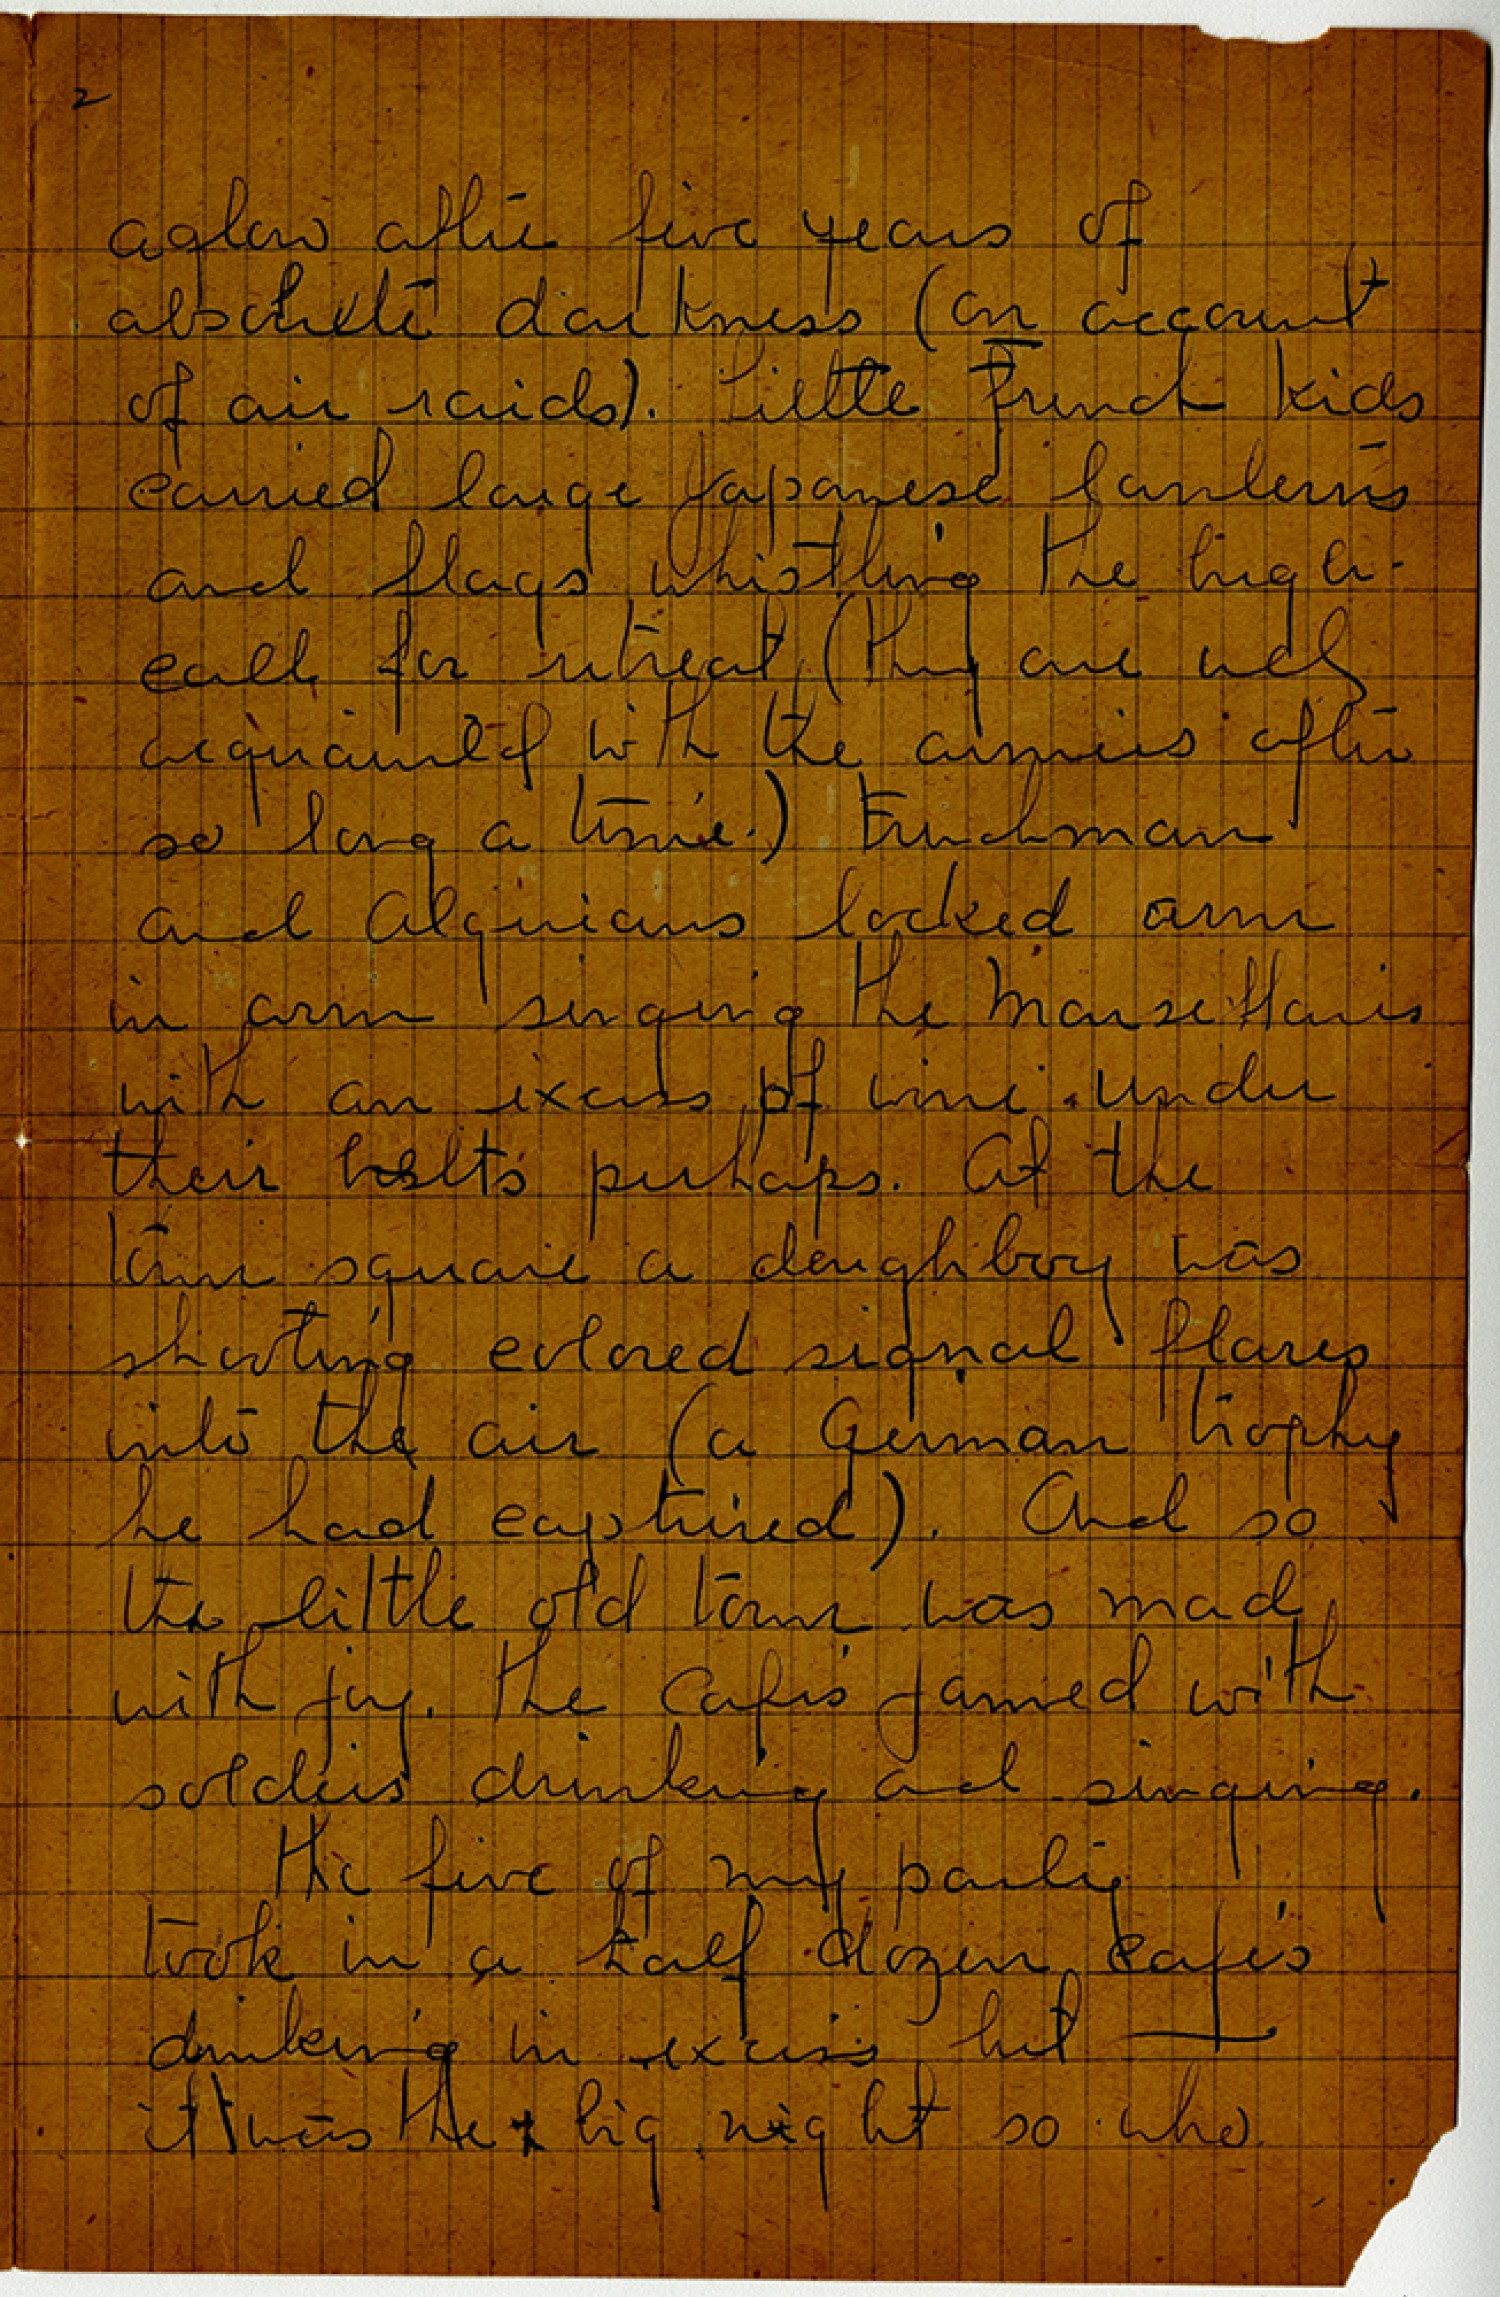 2
aglow after five years of
absolute darkness (on account
of air raids). Little French kids
carried large Japanese lanterns
and flags whistling the bugle-
call for retreat (they are well
acquainted with the armies after
so long a time.) Frenchman
and Algerians locked arm
in arm singing the Marseillais
with an excess of wine under
their belts perhaps. At the
town square a doughboy was
shooting colored signal flares
into the air (a German trophy
he had captured). And so
the little old town was mad
with joy. The Cafés jamed with
soldiers drinking and singing.
The five of my party
took in a half dozen cafés
drinking in excess but —
it was the big night so who